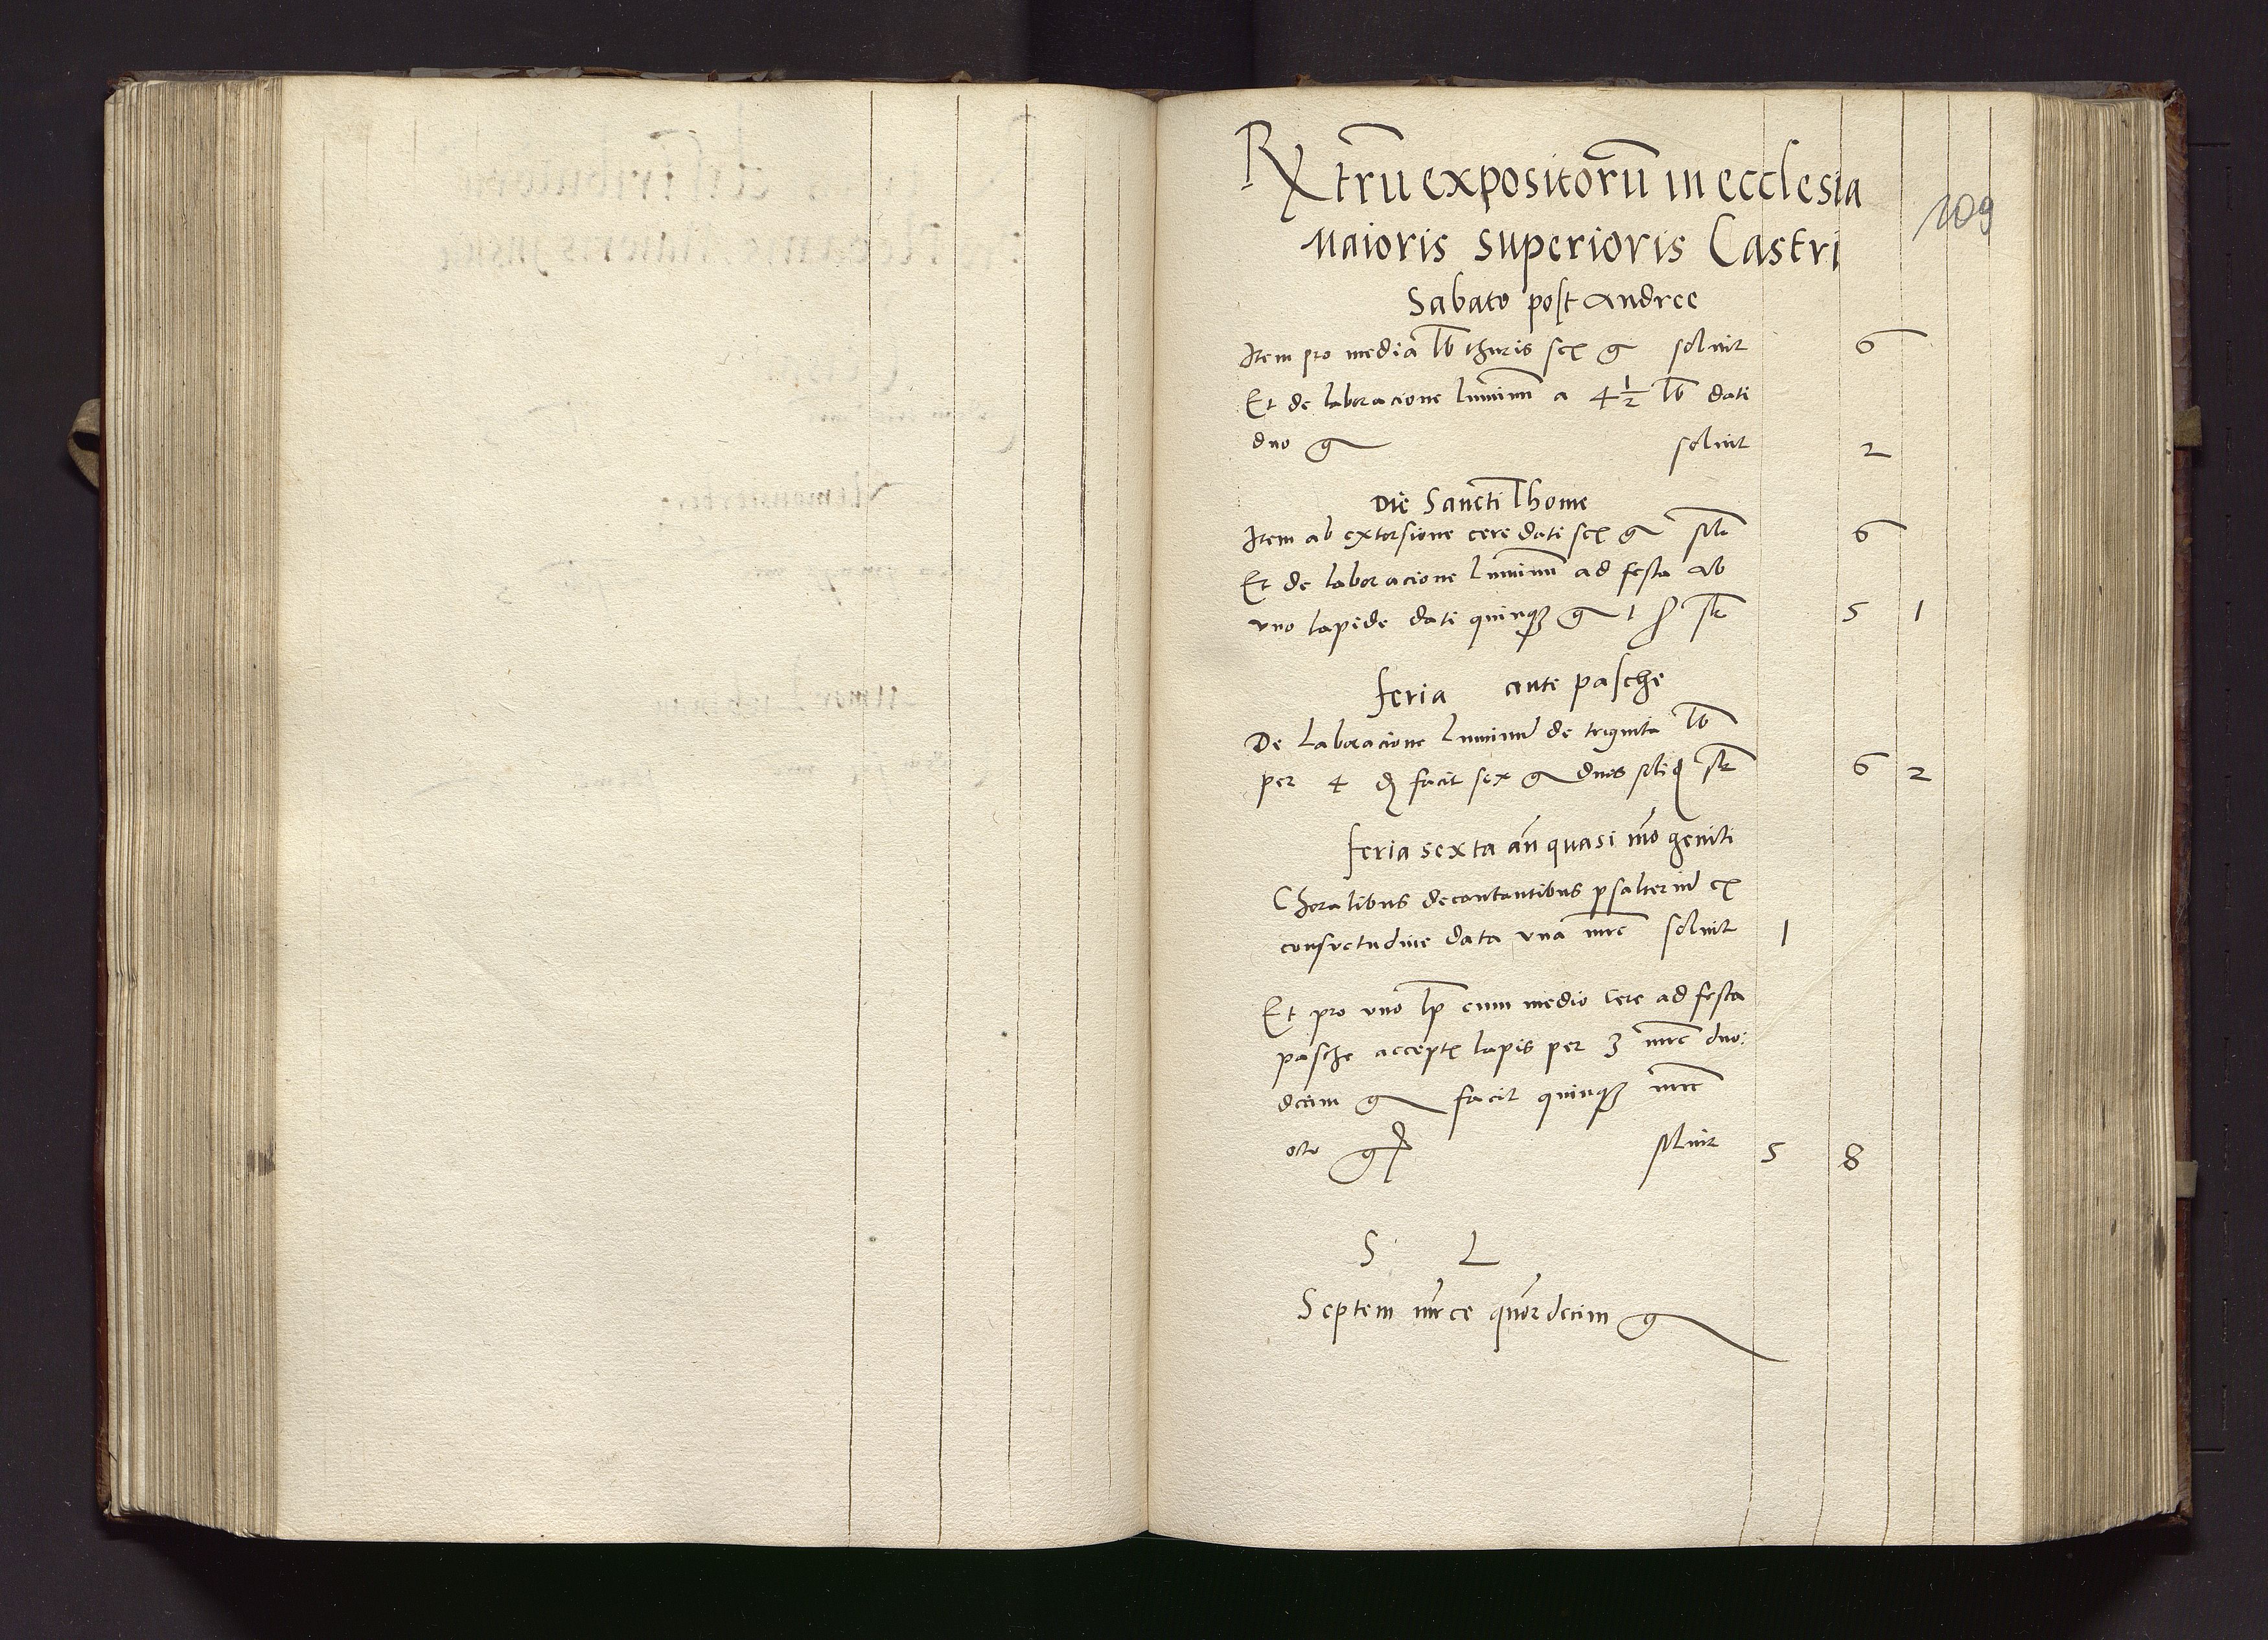 Rx tru expositoru in ecclesia
maioris superioris Castri
109
Sabato post Andree
Item pro media lb thuris sex g soluit 6
Et de laboracione luminum a 4 1/2 lb dati
duo g soluit 2
Die Sancti Thome
Item ab extorsione cere dati sex g solt 6
Et de laboracione luminum ad festa ab
vno lapide dati quinqꝫ g 1 ß slt 5 1
feria ante pasche
De laboracione luminum de triginta lb
per 4 ₰ facit sex g duos solid slt 6 2
feria sexta an quasi mo geniti
Choralibus decantantibus psalterium ex
consuetudine data vna mrc soluit 1
Et pro vno lp cum medio cere ad festa
pasche accept lapis per 3 mrc duo:
decim g facit quinqꝫ mrc
octo g soluit 5 8
S L
Septem mrce quordecim g